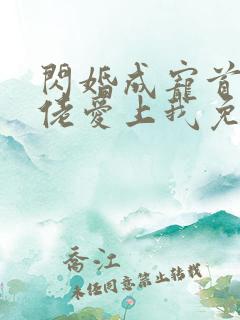 閃婚成寵首
佬愛上我免
喬江
未任同意禁止转载